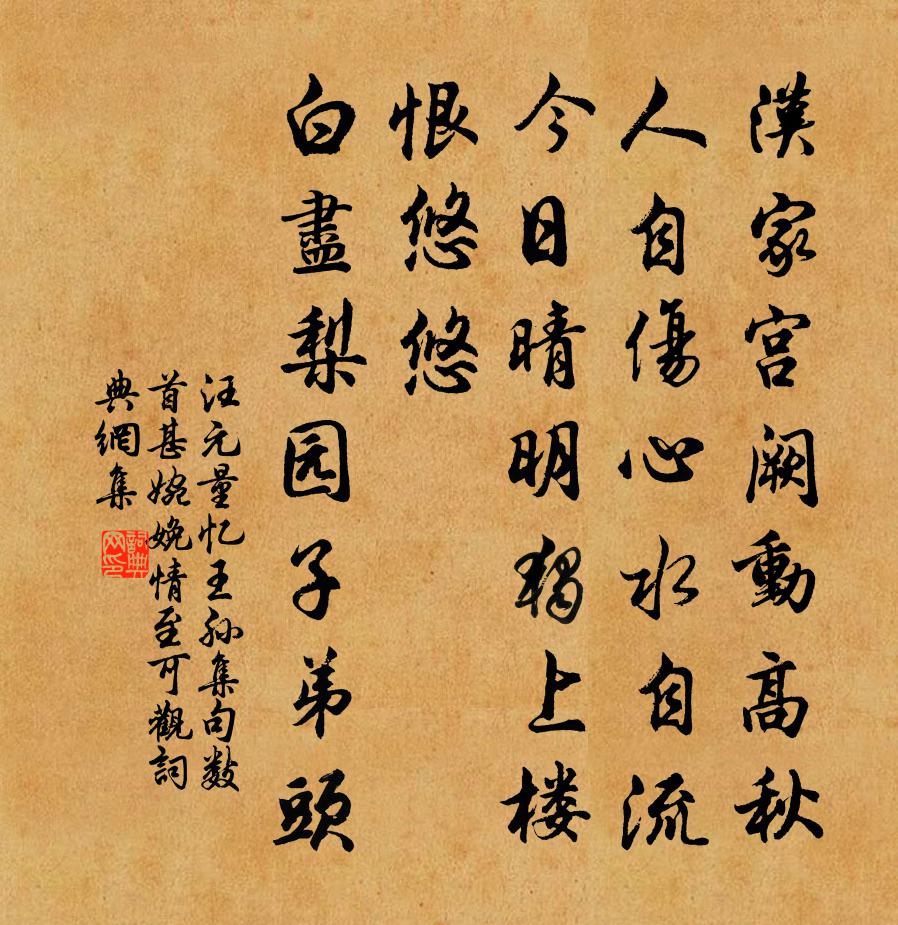 漢家宫阙動高秋
人自傷心水自流
今日晴明獨上楼
恨悠悠
白盡梨园子弟頭
汪元量忆王孙集句数
首甚婉娩情至可觀詞
典網集
詞典網印